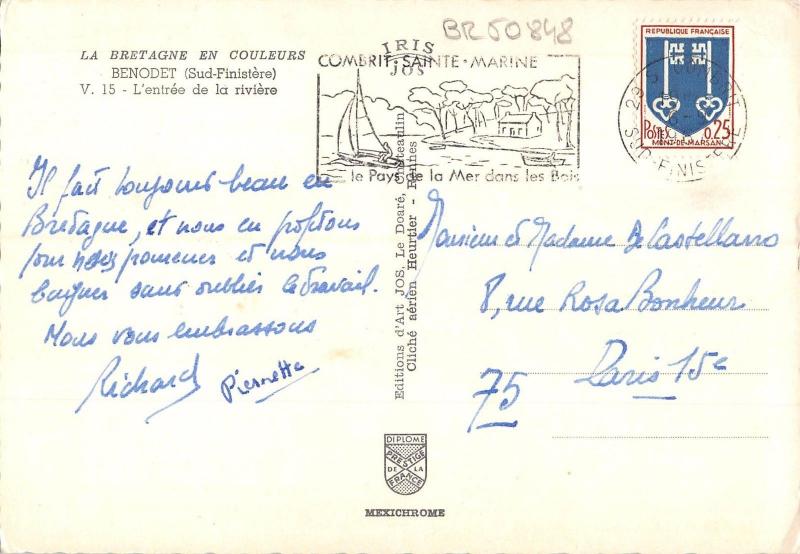 BR50848
LA BRETAGNE EN COULEURS
BENODET (Sud-Finistère)
V. 15 - L'entrée de la rivière
IRIS
JOS
COMBRIT-SAINTE-MARINE
le Pays de la Mer dans les Bois
REPUBLIQUE FRANÇAISE
POSTES 0,25
MONT-DE-MARSAN
COMBRIT
SUD-FINISTERE
Il fait toujours beau en
Bretagne, et nous en profitons
pour nous promener et nous
baigner sans oublier le travail.
Nous vous embrassons
Richard Pierrette
Editions d'Art JOS, Le Doaré, Châteaulin
Cliché aérien Heurtier - Rennes
Monsieur et Madame De Castellarro
8, rue Rosa Bonheur
75 Paris 15e
DIPLOME
PRESTIGE
DE LA
FRANCE
MEXICHROME